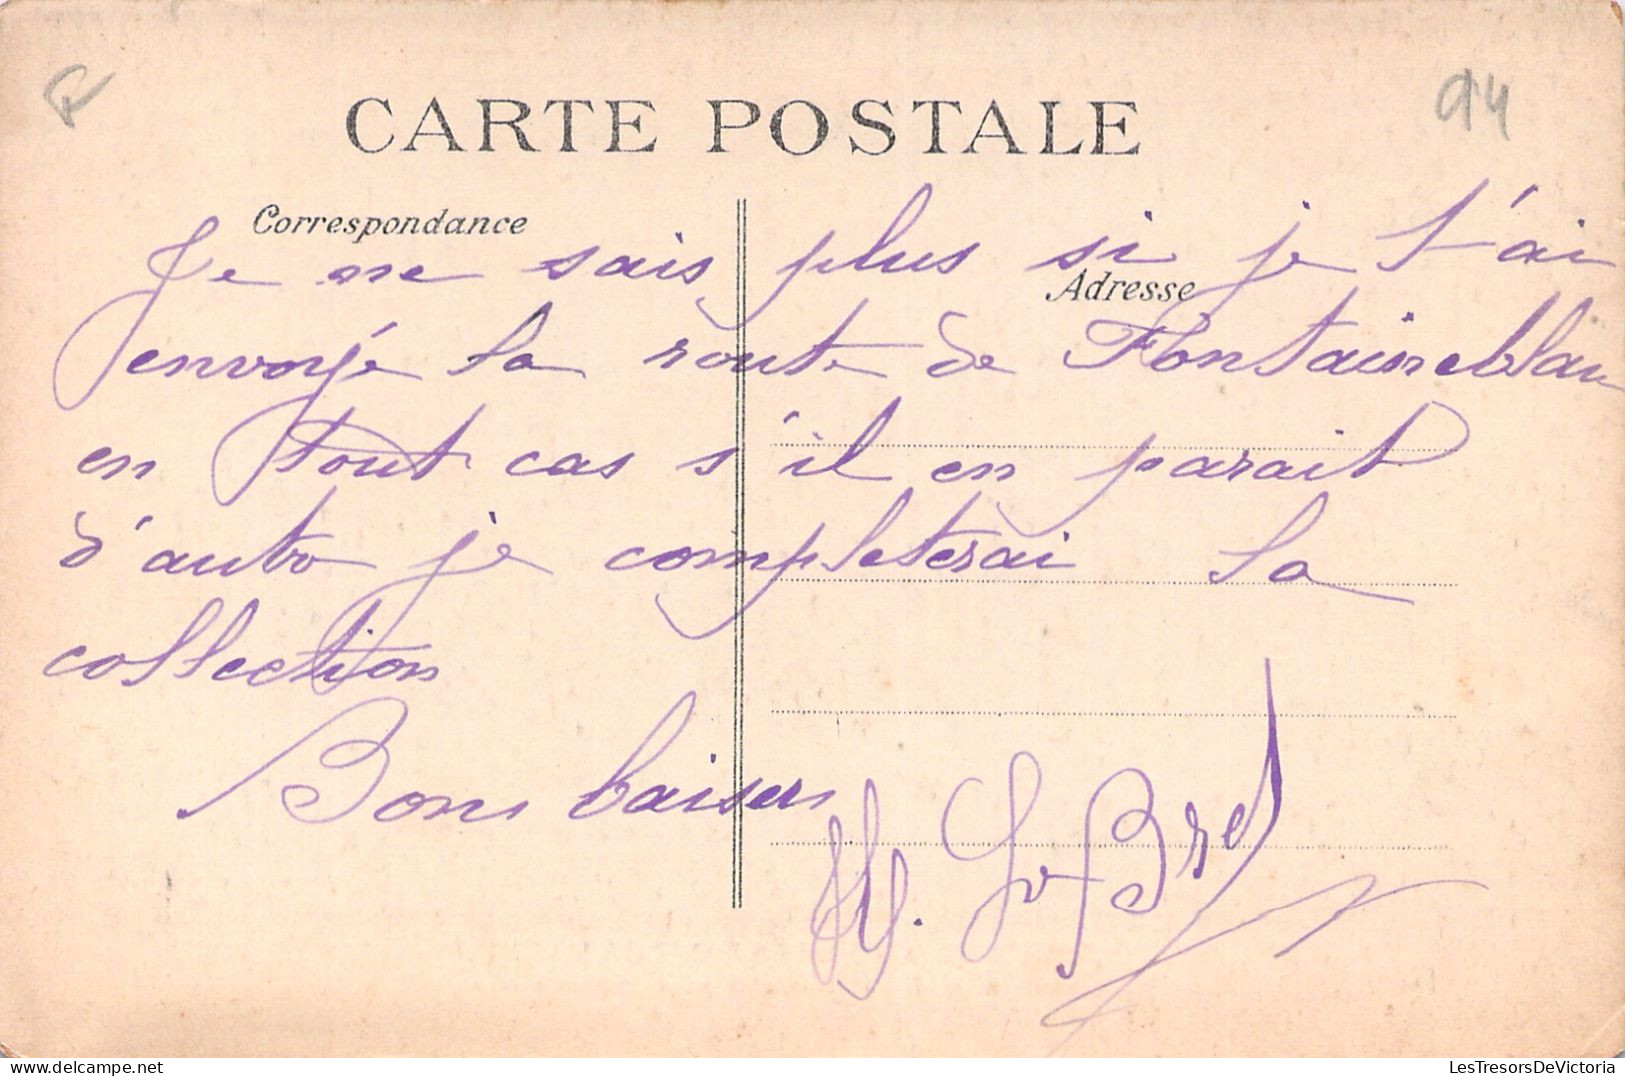 94
CARTE POSTALE
Correspondance
Je ne sais plus si je t'ai
Adresse
envoyé la route de Fontaineblau
en tout cas s'il en parait
d'autre je completerai la
collection
Bons baisers
LesTresorsDeVictoria